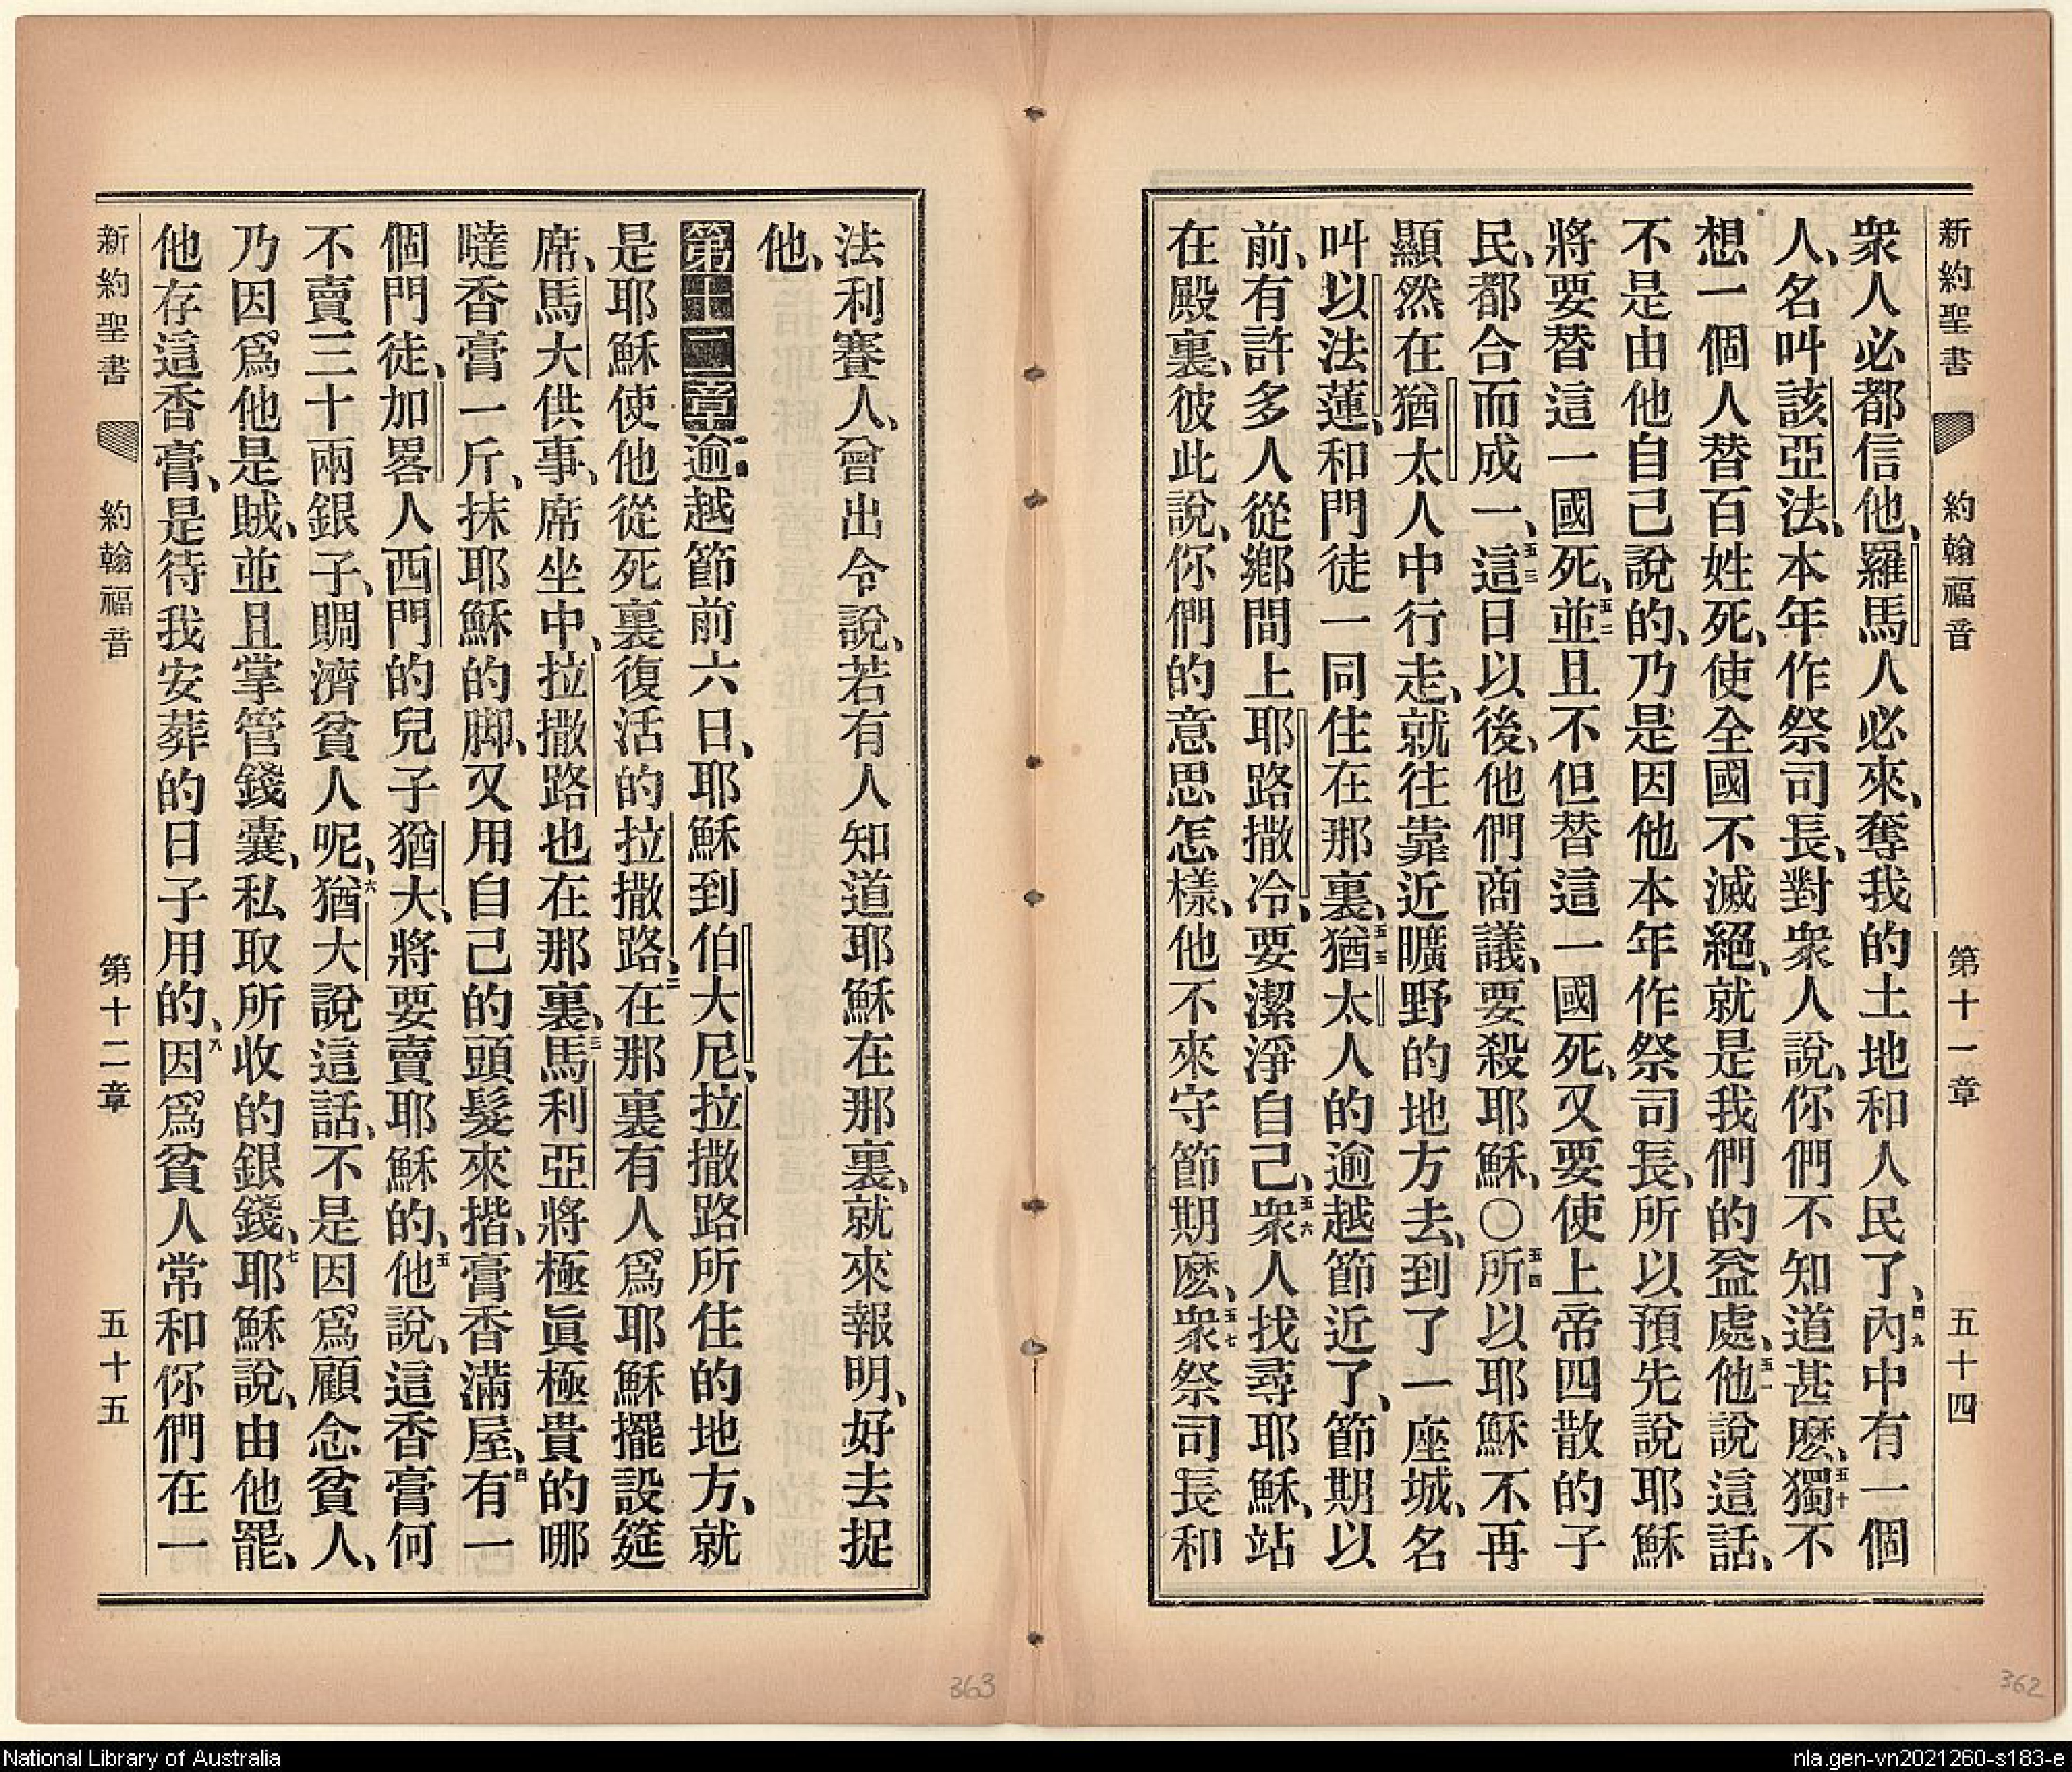 新約聖書 約翰福音 第十一章 五十四
衆人必都信他、羅馬人必來、奪我的土地和人民了、四九內中有一個
人、名叫該亞法、本年作祭司長、對衆人說、你們不知道甚麽、五十獨不
想一個人替百姓死、使全國不滅絕、就是我們的益處、五一他說這話、
不是由他自己說的、乃是因他本年作祭司長、所以預先說耶穌
將要替這一國死、五二並且不但替這一國死、又要使上帝四散的子
民、都合而成一、五三這日以後、他們商議、要殺耶穌、〇五四所以耶穌不再
顯然在猶太人中行走、就往靠近曠野的地方去、到了一座城、名
叫以法蓮、和門徒一同住在那裏、五五猶太人的逾越節近了、節期以
前、有許多人從鄉間上耶路撒冷、要潔淨自己、五六衆人找尋耶穌、站
在殿裏、彼此說、你們的意思怎樣、他不來守節期麽、五七衆祭司長和
法利賽人、曾出令說、若有人知道耶穌在那裏、就來報明、好去捉
他、
第十二章一逾越節前六日、耶穌到伯大尼、拉撒路所住的地方、就
是耶穌使他從死裏復活的拉撒路、二在那裏有人爲耶穌擺設筵
席、馬大供事、席坐中、拉撒路也在那裏、三馬利亞將極眞極貴的哪
噠香膏一斤、抹耶穌的脚、又用自己的頭髮來揩、膏香滿屋、四有一
個門徒、加畧人西門的兒子猶大、將要賣耶穌的、五他說、這香膏何
不賣三十兩銀子、賙濟貧人呢、六猶大說這話、不是因爲顧念貧人、
乃因爲他是賊、並且掌管錢囊、私取所收的銀錢、七耶穌說、由他罷、
他存這香膏、是待我安葬的日子用的、八因爲貧人常和你們在一
新約聖書 約翰福音 第十二章 五十五
363
362
National Library of Australia
nla.gen-vn2021260-s183-e